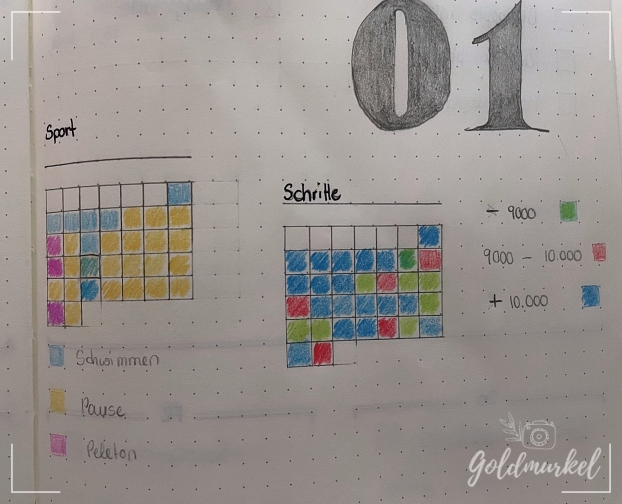 01
Sport
Schritte
- 9000
9000 - 10.000
+ 10.000
Schwimmen
Pause
Peleton
Goldmurkel